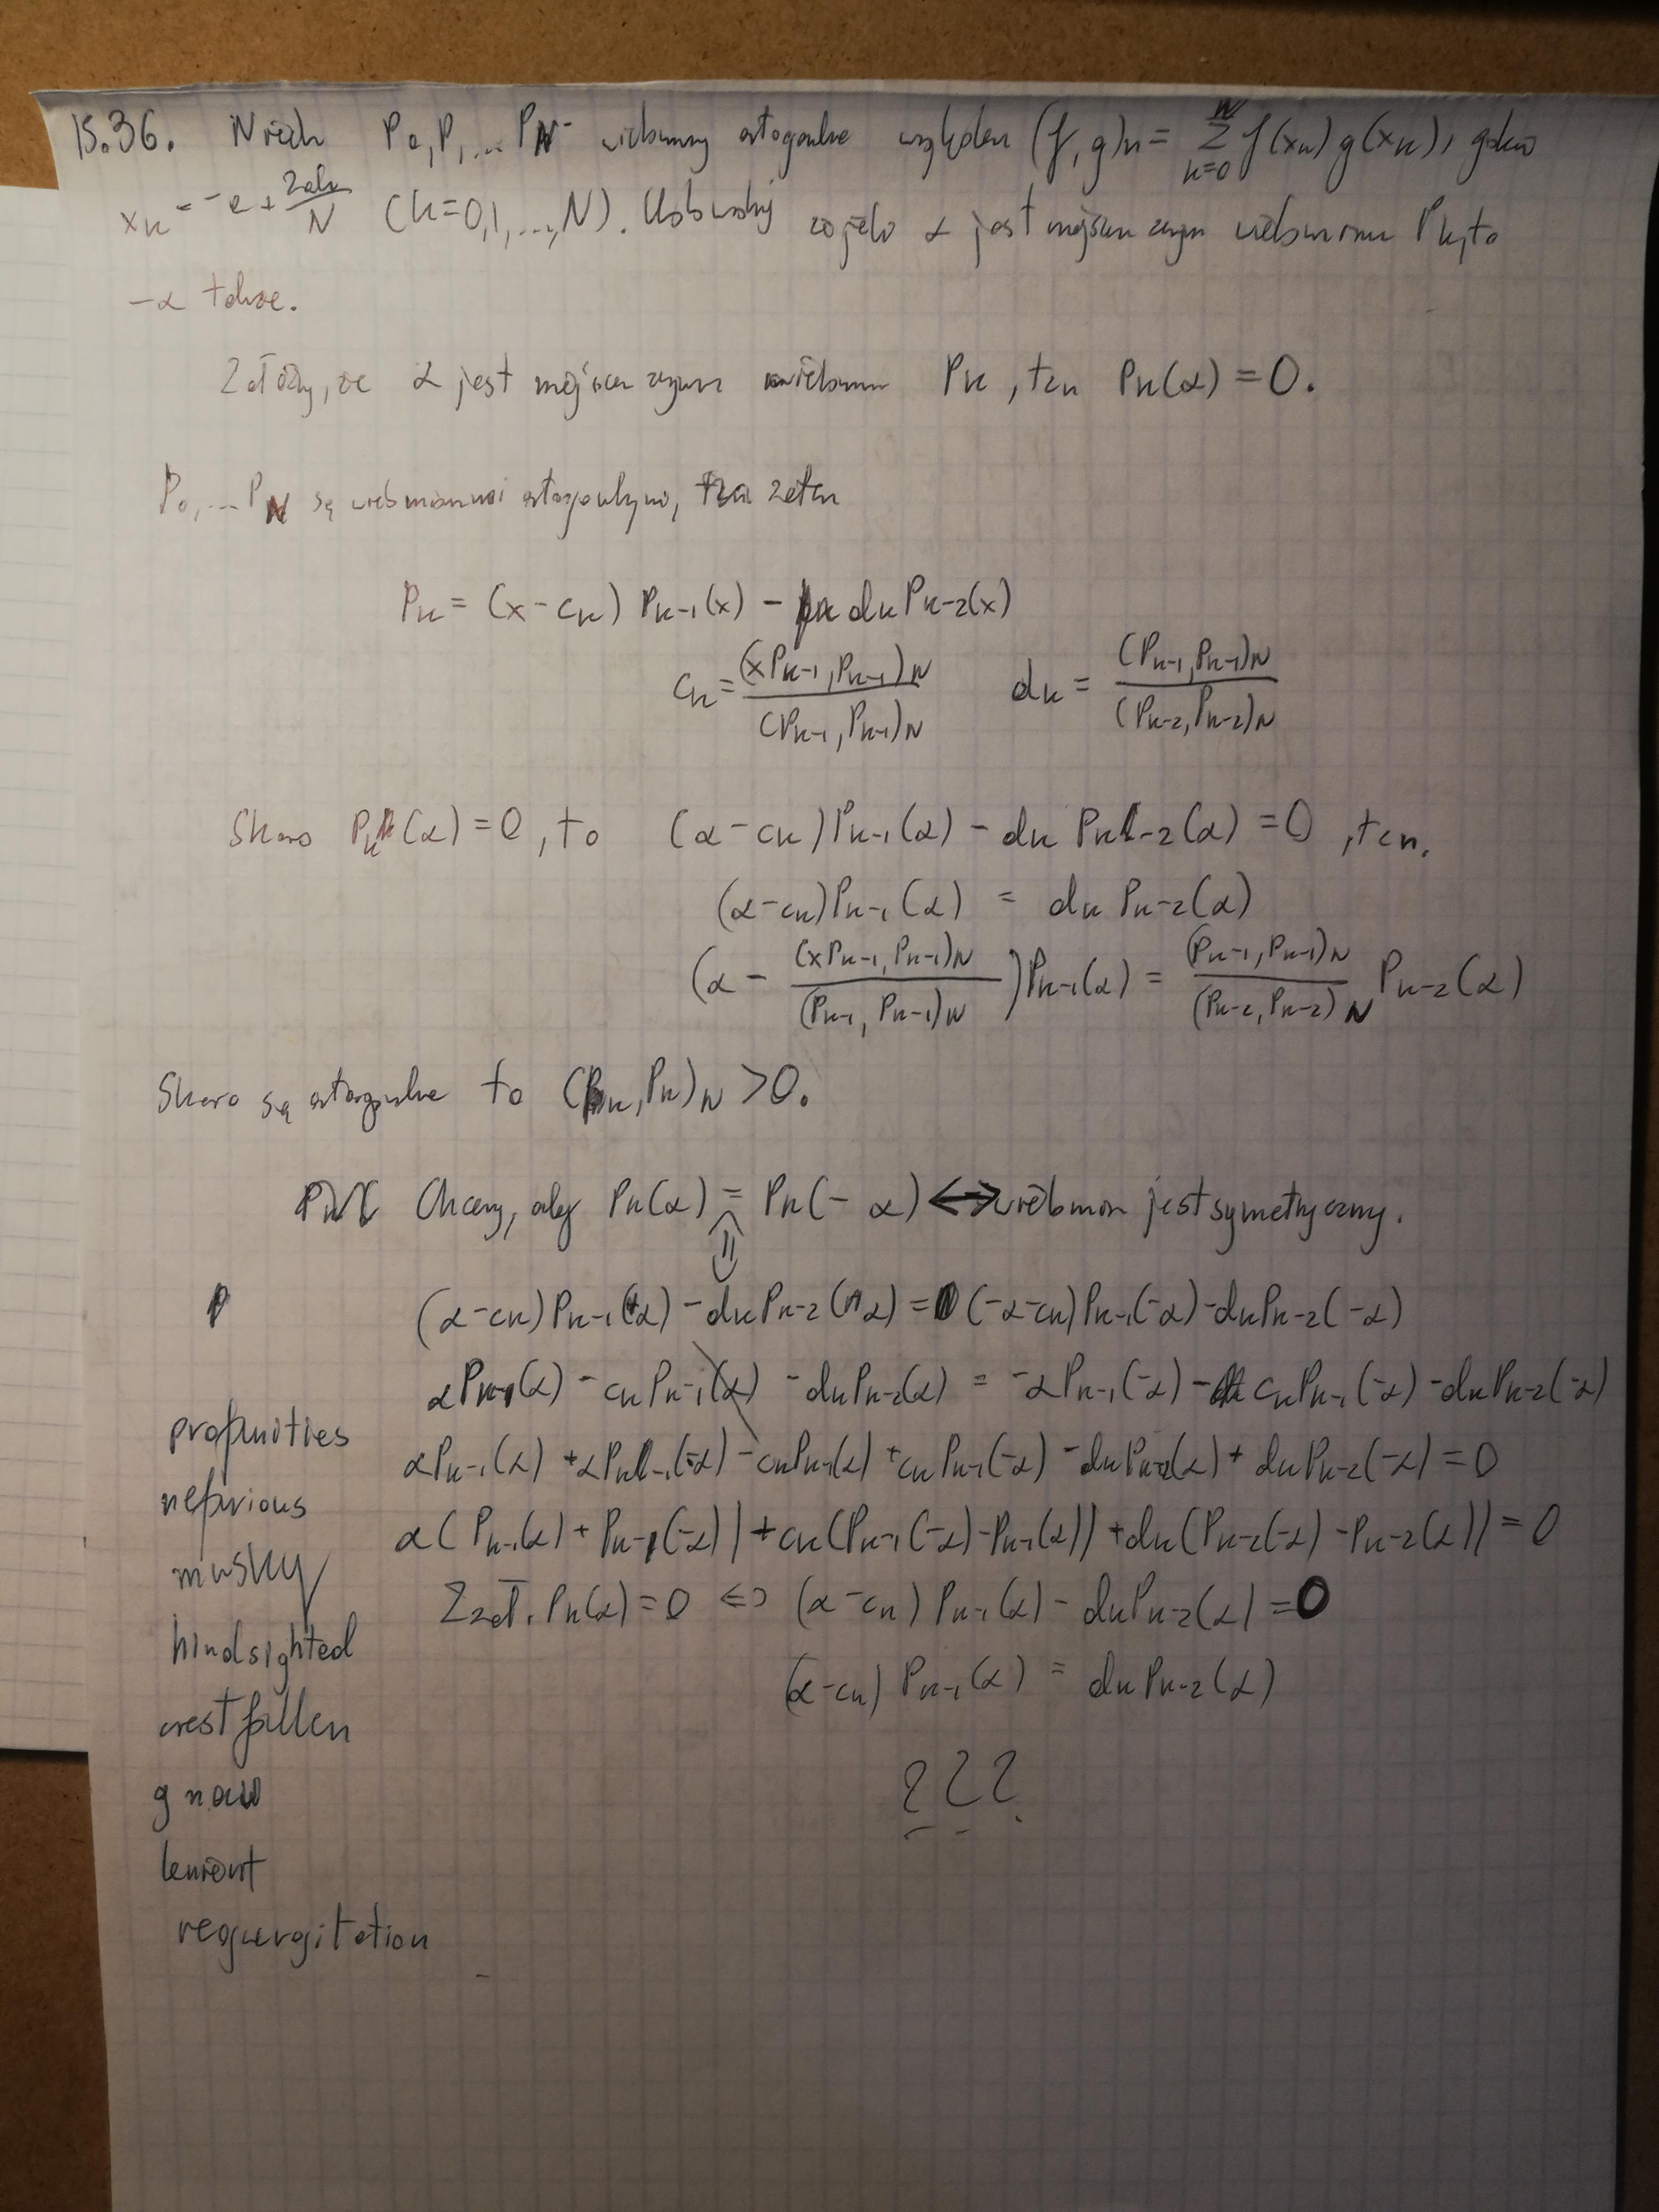 15.36. Niech P₀, P₁, ... P_N - wielomiany ortogonalne względem (f, g)_N = Σ_{k=0}^{N} f(x_k) g(x_k), gdzie
x_k = -a + 2ak/N (k=0,1,...,N). Udowodnij że jeśli α jest miejscem zerym wielomianu P_k, to
-α także.
Załóżmy, że α jest miejscem zerym wielomianu P_k, tzn P_k(α) = 0.
P₀, ... P_N są wielomianami ortogonalnymi, tzn zatem
P_k = (x - c_k) P_{k-1}(x) - d_k P_{k-2}(x)
c_k = (xP_{k-1}, P_{k-1})_N / (P_{k-1}, P_{k-1})_N d_k = (P_{k-1}, P_{k-1})_N / (P_{k-2}, P_{k-2})_N
Skoro P_k(α) = 0, to (α - c_k) P_{k-1}(α) - d_k P_{k-2}(α) = 0, tzn.
(α - c_k) P_{k-1}(α) = d_k P_{k-2}(α)
(α - (xP_{k-1}, P_{k-1})_N / (P_{k-1}, P_{k-1})_N) P_{k-1}(α) = (P_{k-1}, P_{k-1})_N / (P_{k-2}, P_{k-2})_N P_{k-2}(α)
Skoro są ortogonalne to (P_k, P_k)_N > 0.
Chcemy, aby P_k(α) = P_k(-α) ↔ wielomian jest symetryczny.
⇕
(α - c_k) P_{k-1}(α) - d_k P_{k-2}(α) = (-α - c_k) P_{k-1}(-α) - d_k P_{k-2}(-α)
αP_{k-1}(α) - c_k P_{k-1}(α) - d_k P_{k-2}(α) = -αP_{k-1}(-α) - c_k P_{k-1}(-α) - d_k P_{k-2}(-α)
αP_{k-1}(α) + αP_{k-1}(-α) - c_k P_{k-1}(α) + c_k P_{k-1}(-α) - d_k P_{k-2}(α) + d_k P_{k-2}(-α) = 0
α(P_{k-1}(α) + P_{k-1}(-α)) + c_k (P_{k-1}(-α) - P_{k-1}(α)) + d_k (P_{k-2}(-α) - P_{k-2}(α)) = 0
Z zał. P_k(α) = 0 ⇔ (α - c_k) P_{k-1}(α) - d_k P_{k-2}(α) = 0
(α - c_k) P_{k-1}(α) = d_k P_{k-2}(α)
???
profunities
nefarious
musky
hindsighted
crestfallen
gnaw
lenient
regurgitation